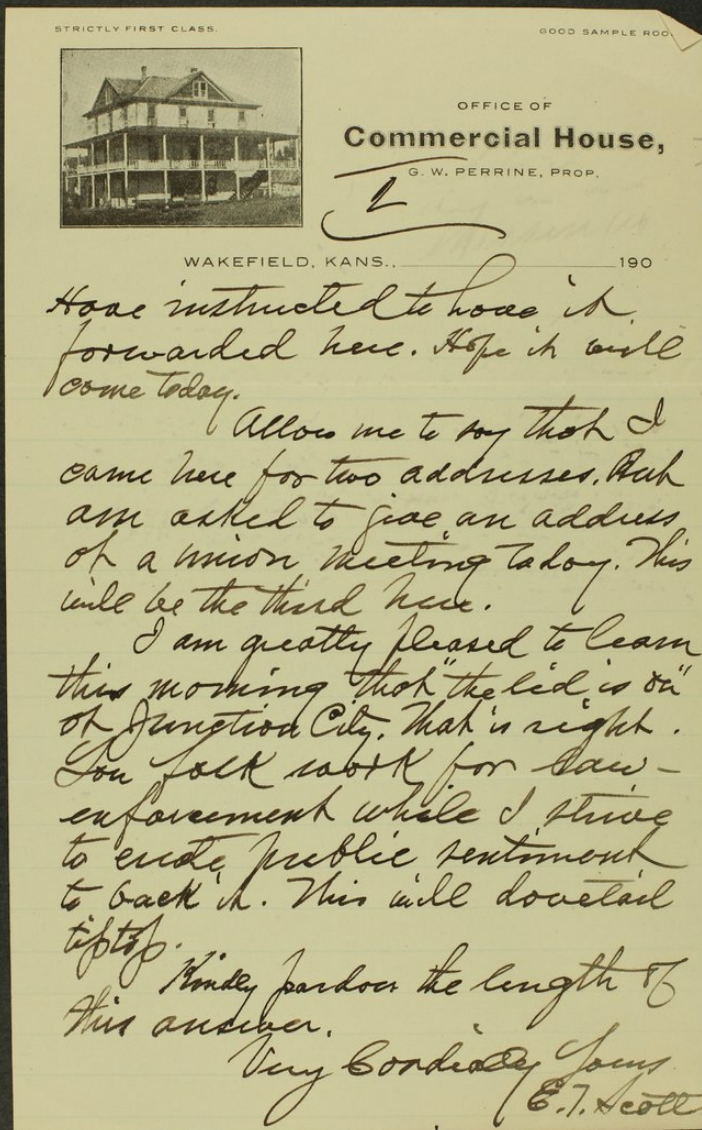 STRICTLY FIRST CLASS.
GOOD SAMPLE ROO
OFFICE OF
Commercial House,
G. W. PERRINE, PROP.
2
WAKEFIELD, KANS., 190
Have instructed to have it
forwarded here. Hope it will
come today.
Allow me to say that I
came here for two addresses. But
am asked to give an address
at a union meeting today. This
will be the third here.
I am greatly pleased to learn
this morning that "the lid is on"
at Junction City. That is right.
You folk work for law-
enforcement while I strive
to create public sentiment
to back it. This will dovetail
tiptop.
Kindly pardon the length of
this answer.
Very Cordially Yours
E. T. Scott